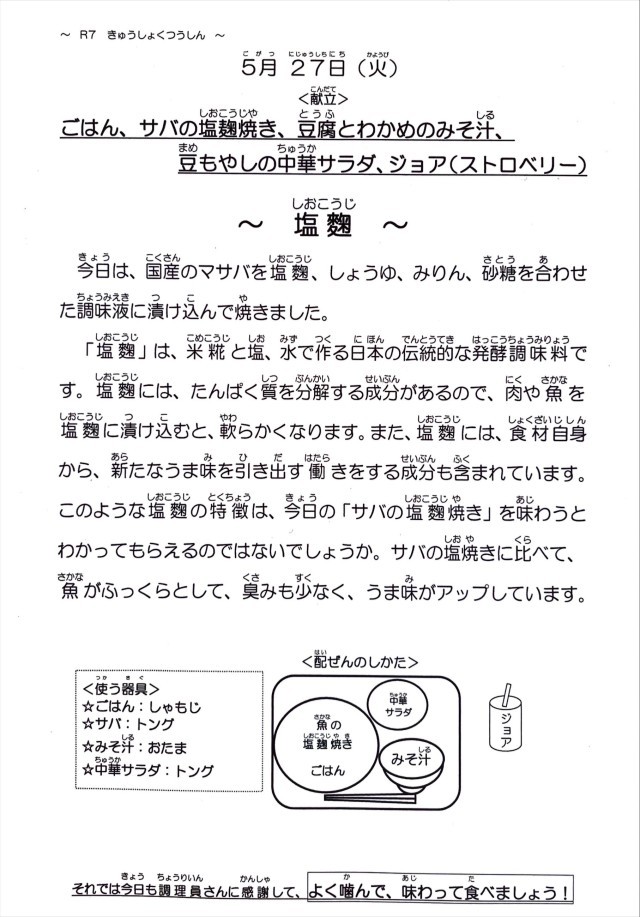 ～ R7 きゅうしょくつうしん ～
５月 ２７日（火）
＜献立＞
ごはん、サバの塩麹焼き、豆腐とわかめのみそ汁、
豆もやしの中華サラダ、ジョア（ストロベリー）
～ 塩麴 ～
今日は、国産のマサバを塩麴、しょうゆ、みりん、砂糖を合わせ
た調味液に漬け込んで焼きました。
「塩麴」は、米糀と塩、水で作る日本の伝統的な発酵調味料で
す。塩麴には、たんぱく質を分解する成分があるので、肉や魚を
塩麴に漬け込むと、軟らかくなります。また、塩麴には、食材自身
から、新たなうま味を引き出す働きをする成分も含まれています。
このような塩麴の特徴は、今日の「サバの塩麴焼き」を味わうと
わかってもらえるのではないでしょうか。サバの塩焼きに比べて、
魚がふっくらとして、臭みも少なく、うま味がアップしています。
＜配ぜんのしかた＞
＜使う器具＞
☆ごはん：しゃもじ
☆サバ：トング
☆みそ汁：おたま
☆中華サラダ：トング
魚の
塩麴焼き
ごはん
中華
サラダ
みそ汁
ジョア
それでは今日も調理員さんに感謝して、よく噛んで、味わって食べましょう！